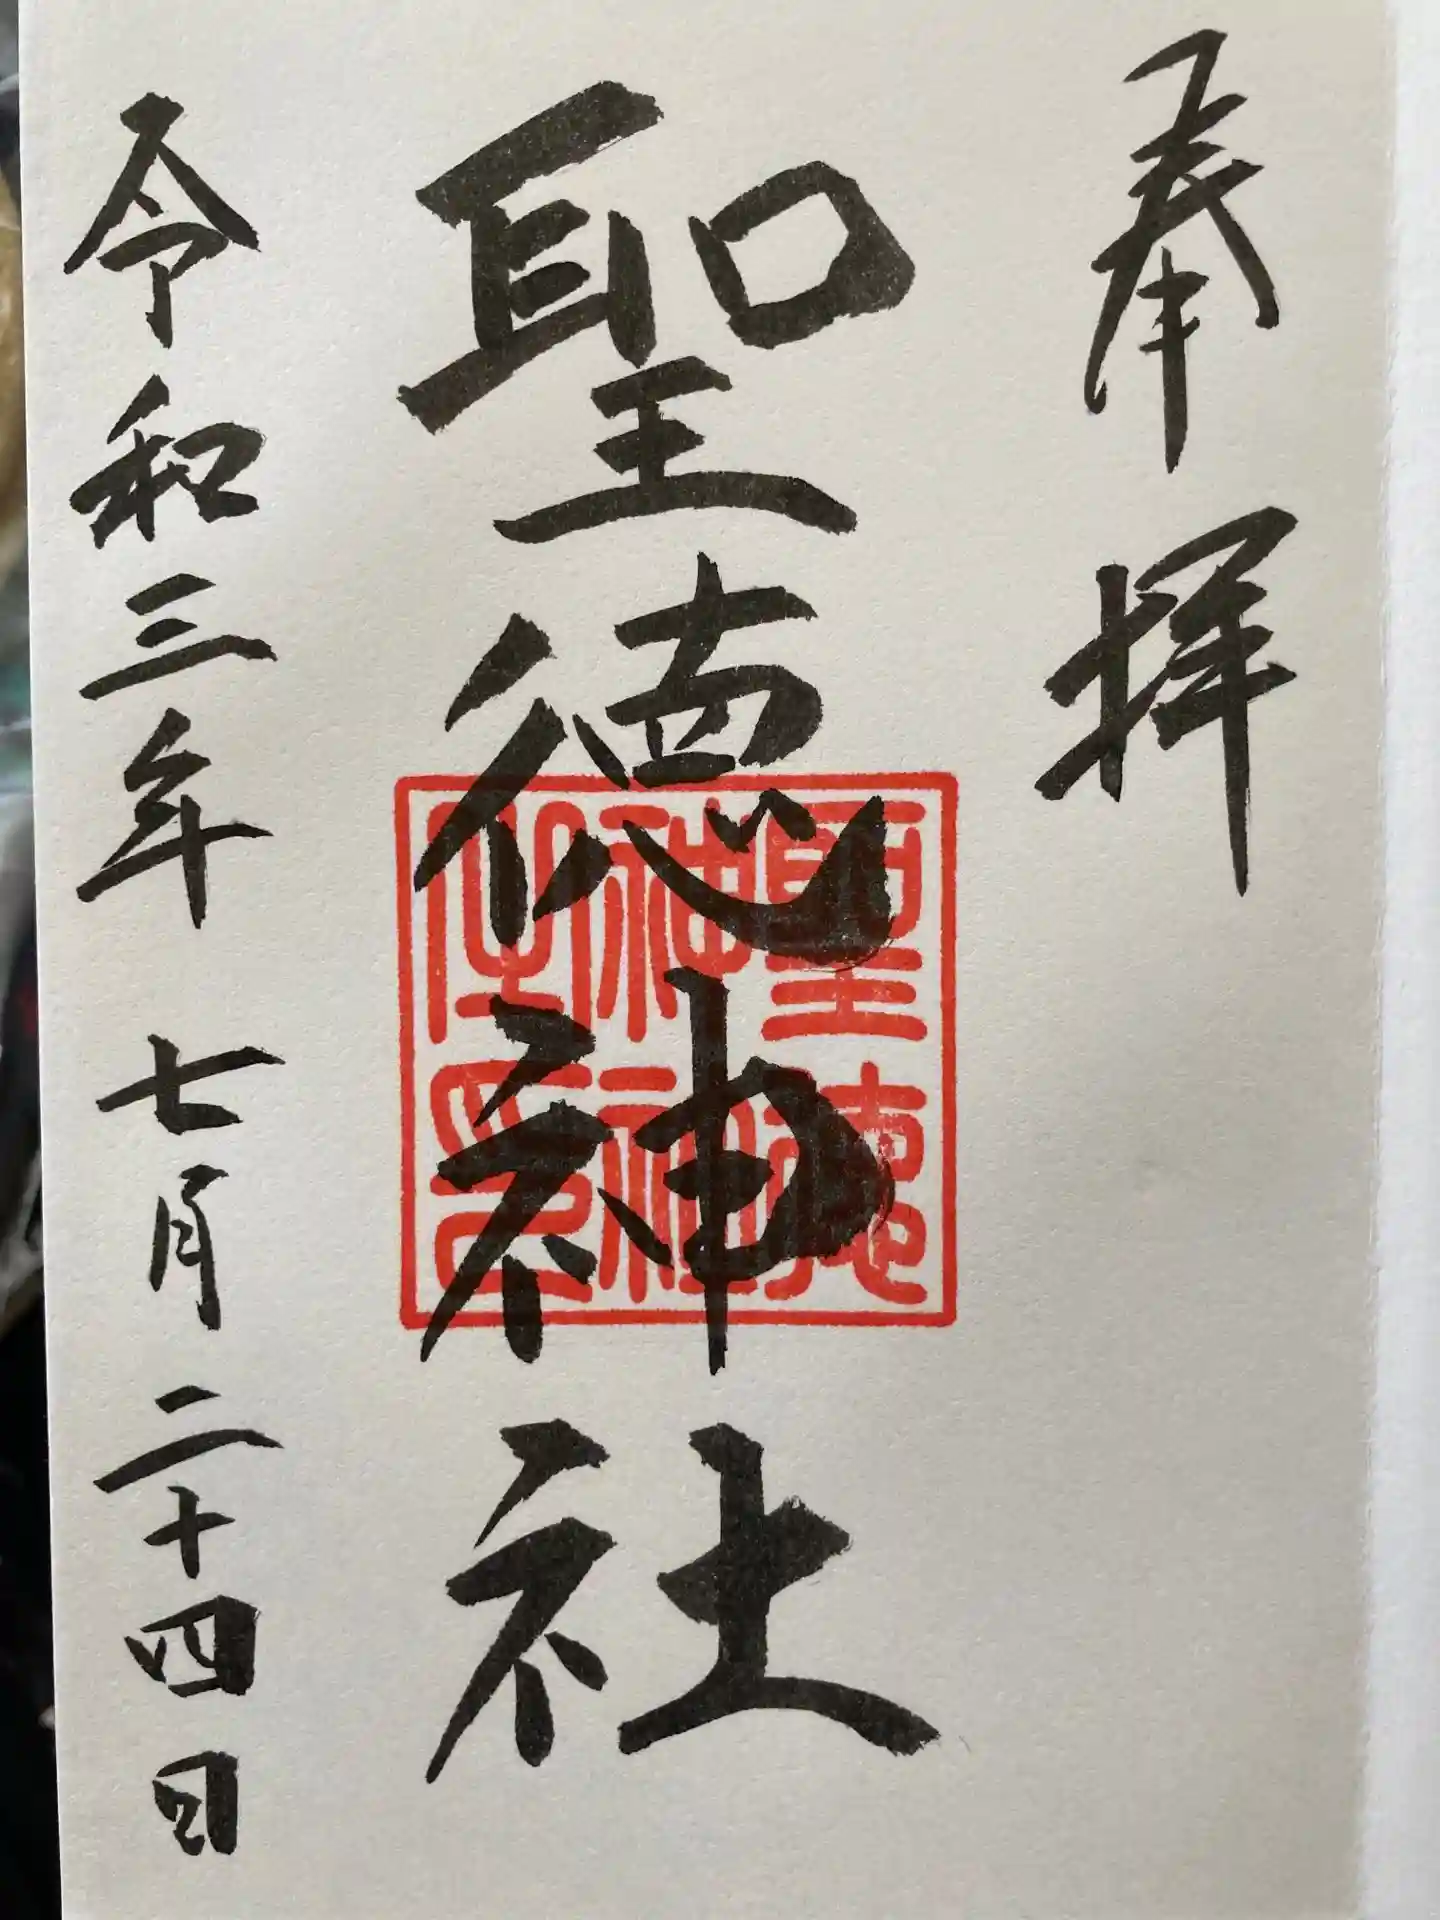 奉拝
聖徳神社
聖徳
神社
之印
令和三年 七月二十四日